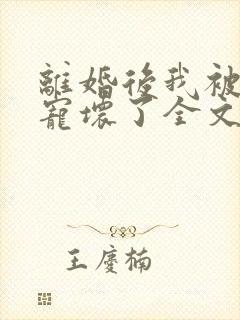 離婚後我被
寵壞了全文
王慶楠